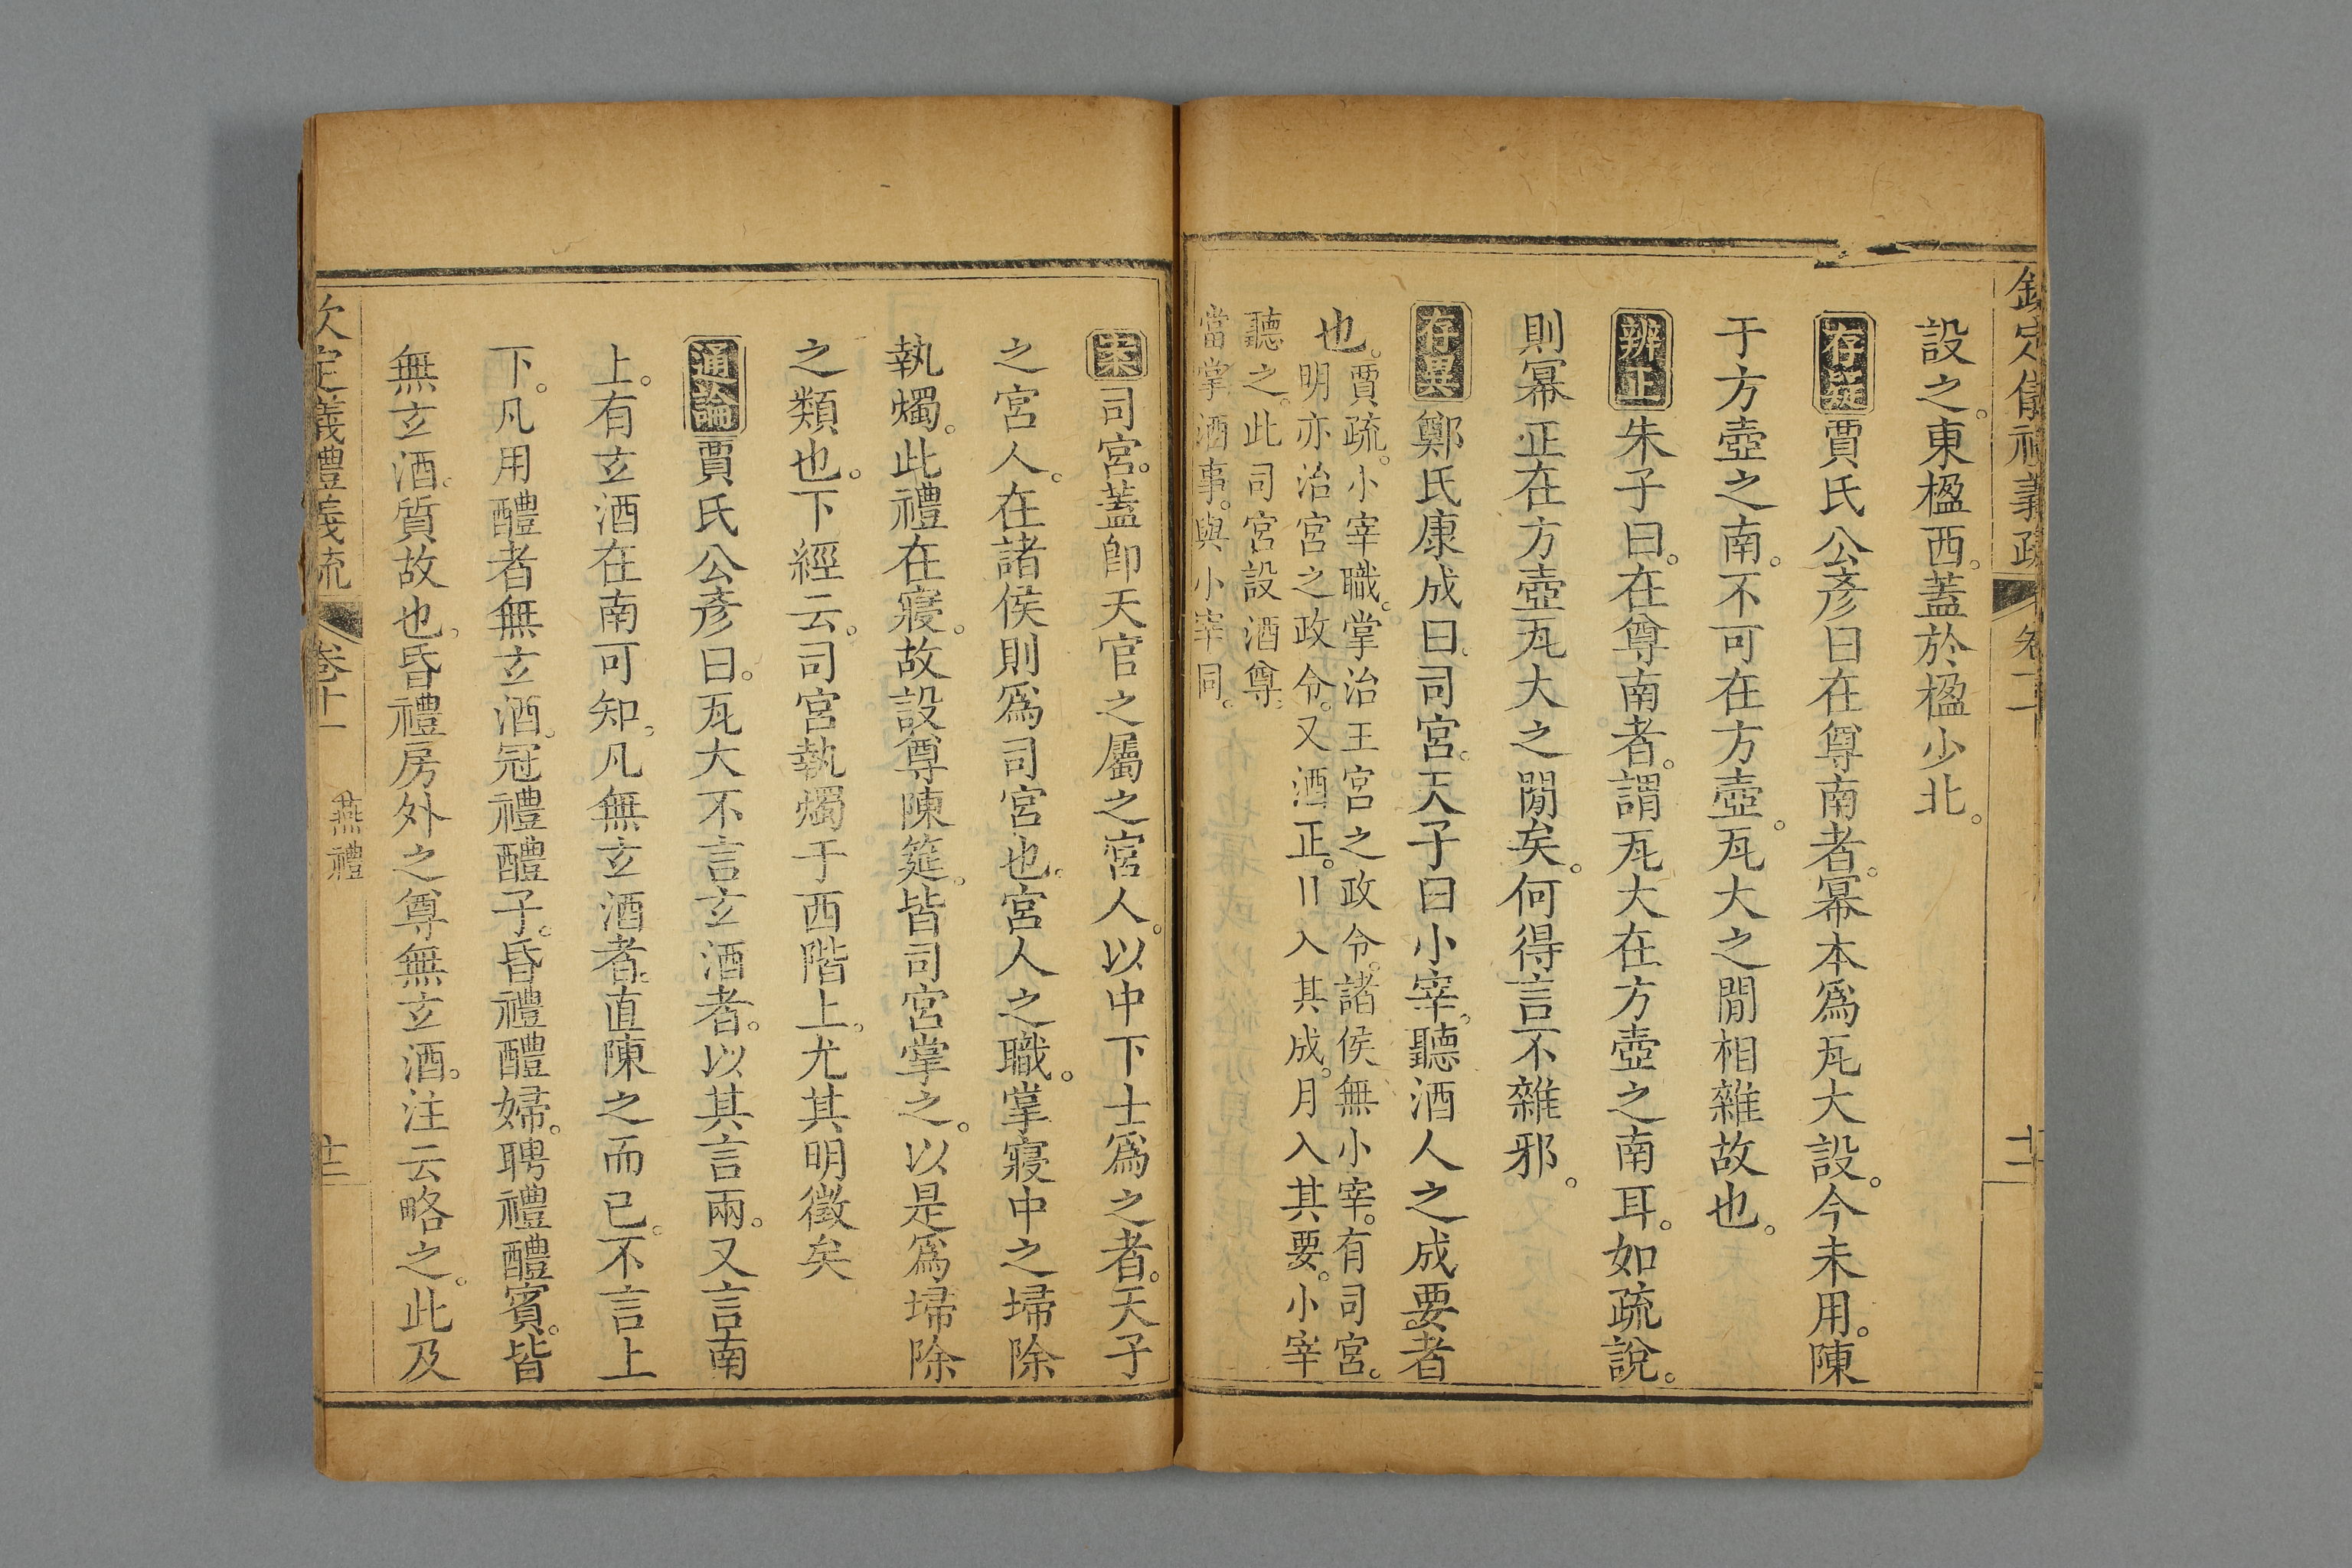 設之。東楹西。蓋於楹少北。
存疑賈氏公彥曰在尊南者。冪本爲瓦大設。今未用。陳
于方壺之南。不可在方壺。瓦大之閒相雜故也。
辨正朱子曰。在尊南者。謂瓦大在方壺之南耳。如疏說。
則冪正在方壺瓦大之閒矣。何得言不雜邪。
存異鄭氏康成曰。司宮。天子曰小宰。聽酒人之成要者
也。賈疏。小宰職。掌治王宮之政令。諸侯無小宰。有司宮。
明亦治宮之政令。又酒正。日入其成。月入其要。小宰
聽之。此司宮設酒尊。
當掌酒事。與小宰同。
案司宮。蓋卽天官之屬之宮人。以中下士爲之者。天子
之宮人。在諸侯則爲司宮也。宮人之職。掌寢中之埽除
執燭。此禮在寢。故設尊陳筵。皆司宮掌之。以是爲埽除
之類也。下經云。司宮執燭于西階上。尤其明徵矣
通論賈氏公彥曰。瓦大不言玄酒者。以其言兩。又言南
上。有玄酒在南可知。凡無玄酒者。直陳之而已。不言上
下。凡用醴者無玄酒。冠禮醴子。昏禮醴婦。聘禮醴賓。皆
無玄酒。質故也。昏禮房外之尊無玄酒。注云略之。此及
欽定儀禮義疏 卷十一 燕禮